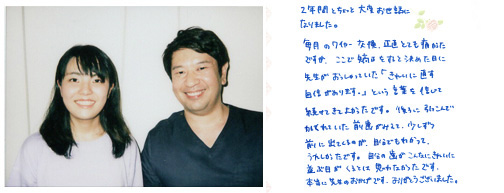 2年間とちょっと大変お世話に
なりました。
毎月のワイヤー交換、正直とても痛かった
ですが、ここで矯正をすると決めた日に
先生がおっしゃっていた「きれいに直す
自信があります。」という言葉を信じて
続けてきてよかったです。後ろに引っこんで
かくれていた前歯がみえて、少しずつ
前に出てくるのが、自分でもわかって、
うれしかったです。自分の歯がこんなにきれいに
並ぶ日がくるとは思わなかったです。
本当に先生のおかげです。ありがとうございました。